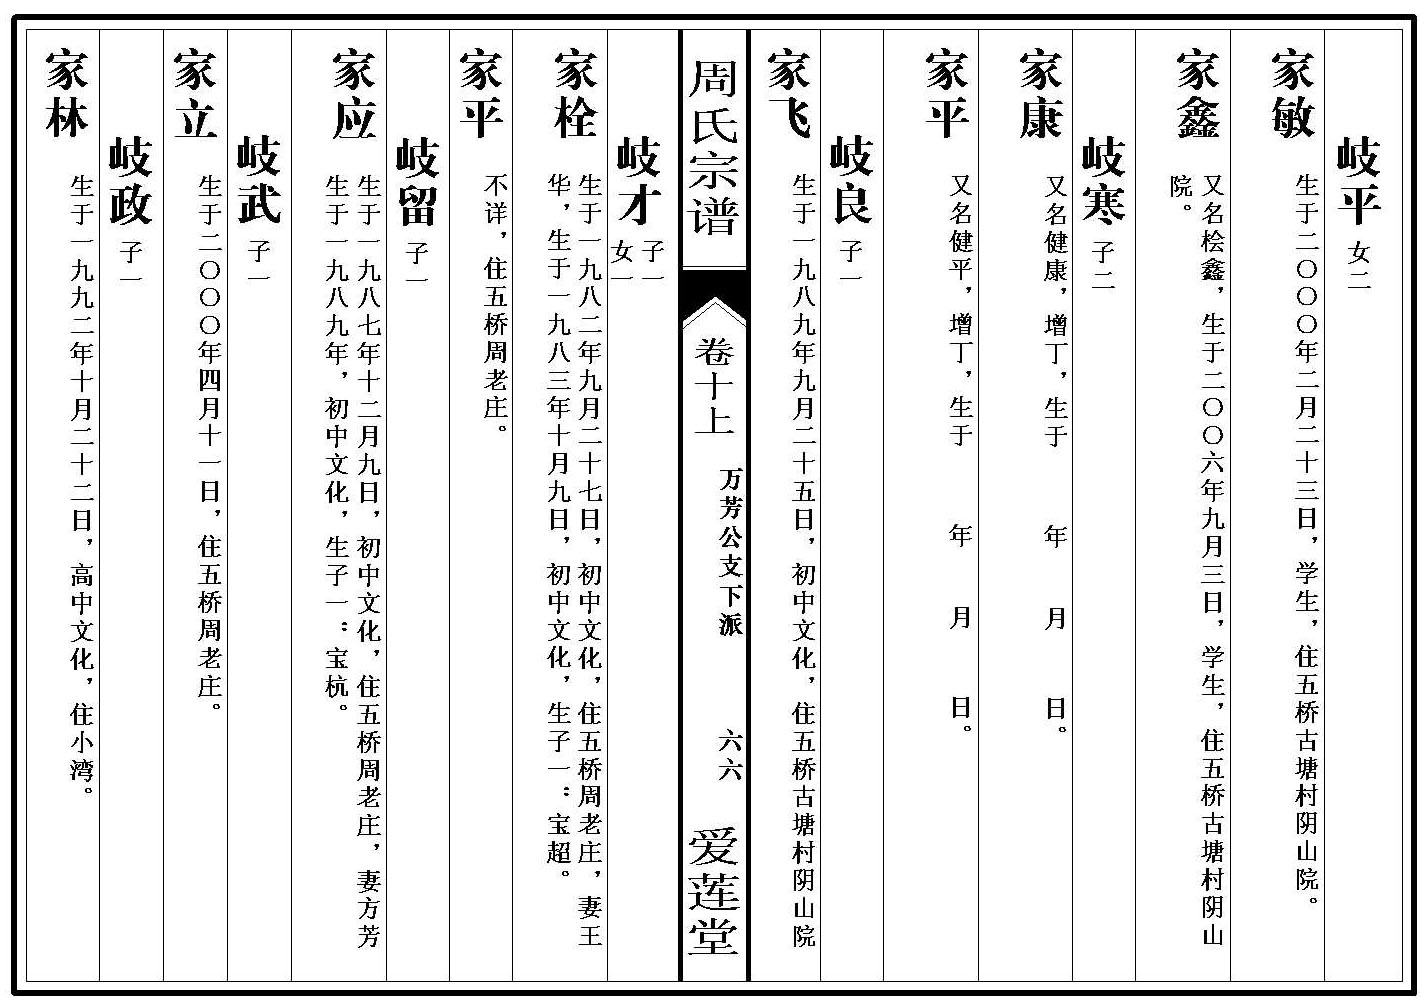 岐平 女二
家敏 生于二〇〇〇年二月二十三日，学生，住五桥古塘村阴山院。
家鑫 又名桧鑫，生于二〇〇六年九月三日，学生，住五桥古塘村阴山
院。
岐寒 子二
家康 又名健康，增丁，生于 年 月 日。
家平 又名健平，增丁，生于 年 月 日。
岐良 子一
家飞 生于一九八九年九月二十五日，初中文化，住五桥古塘村阴山院
周氏宗谱 卷十上 万芳公支下派 六六 爱莲堂
岐才 子一
女一
家栓 生于一九八二年九月二十七日，初中文化，住五桥周老庄，妻王
华，生于一九八三年十月九日，初中文化，生子一：宝超。
家平 不详，住五桥周老庄。
岐留 子一
家应 生于一九八七年十二月九日，初中文化，住五桥周老庄，妻方芳
生于一九八九年，初中文化，生子一：宝杭。
岐武 子一
家立 生于二〇〇〇年四月十一日，住五桥周老庄。
岐政 子一
家林 生于一九九二年十月二十二日，高中文化，住小湾。